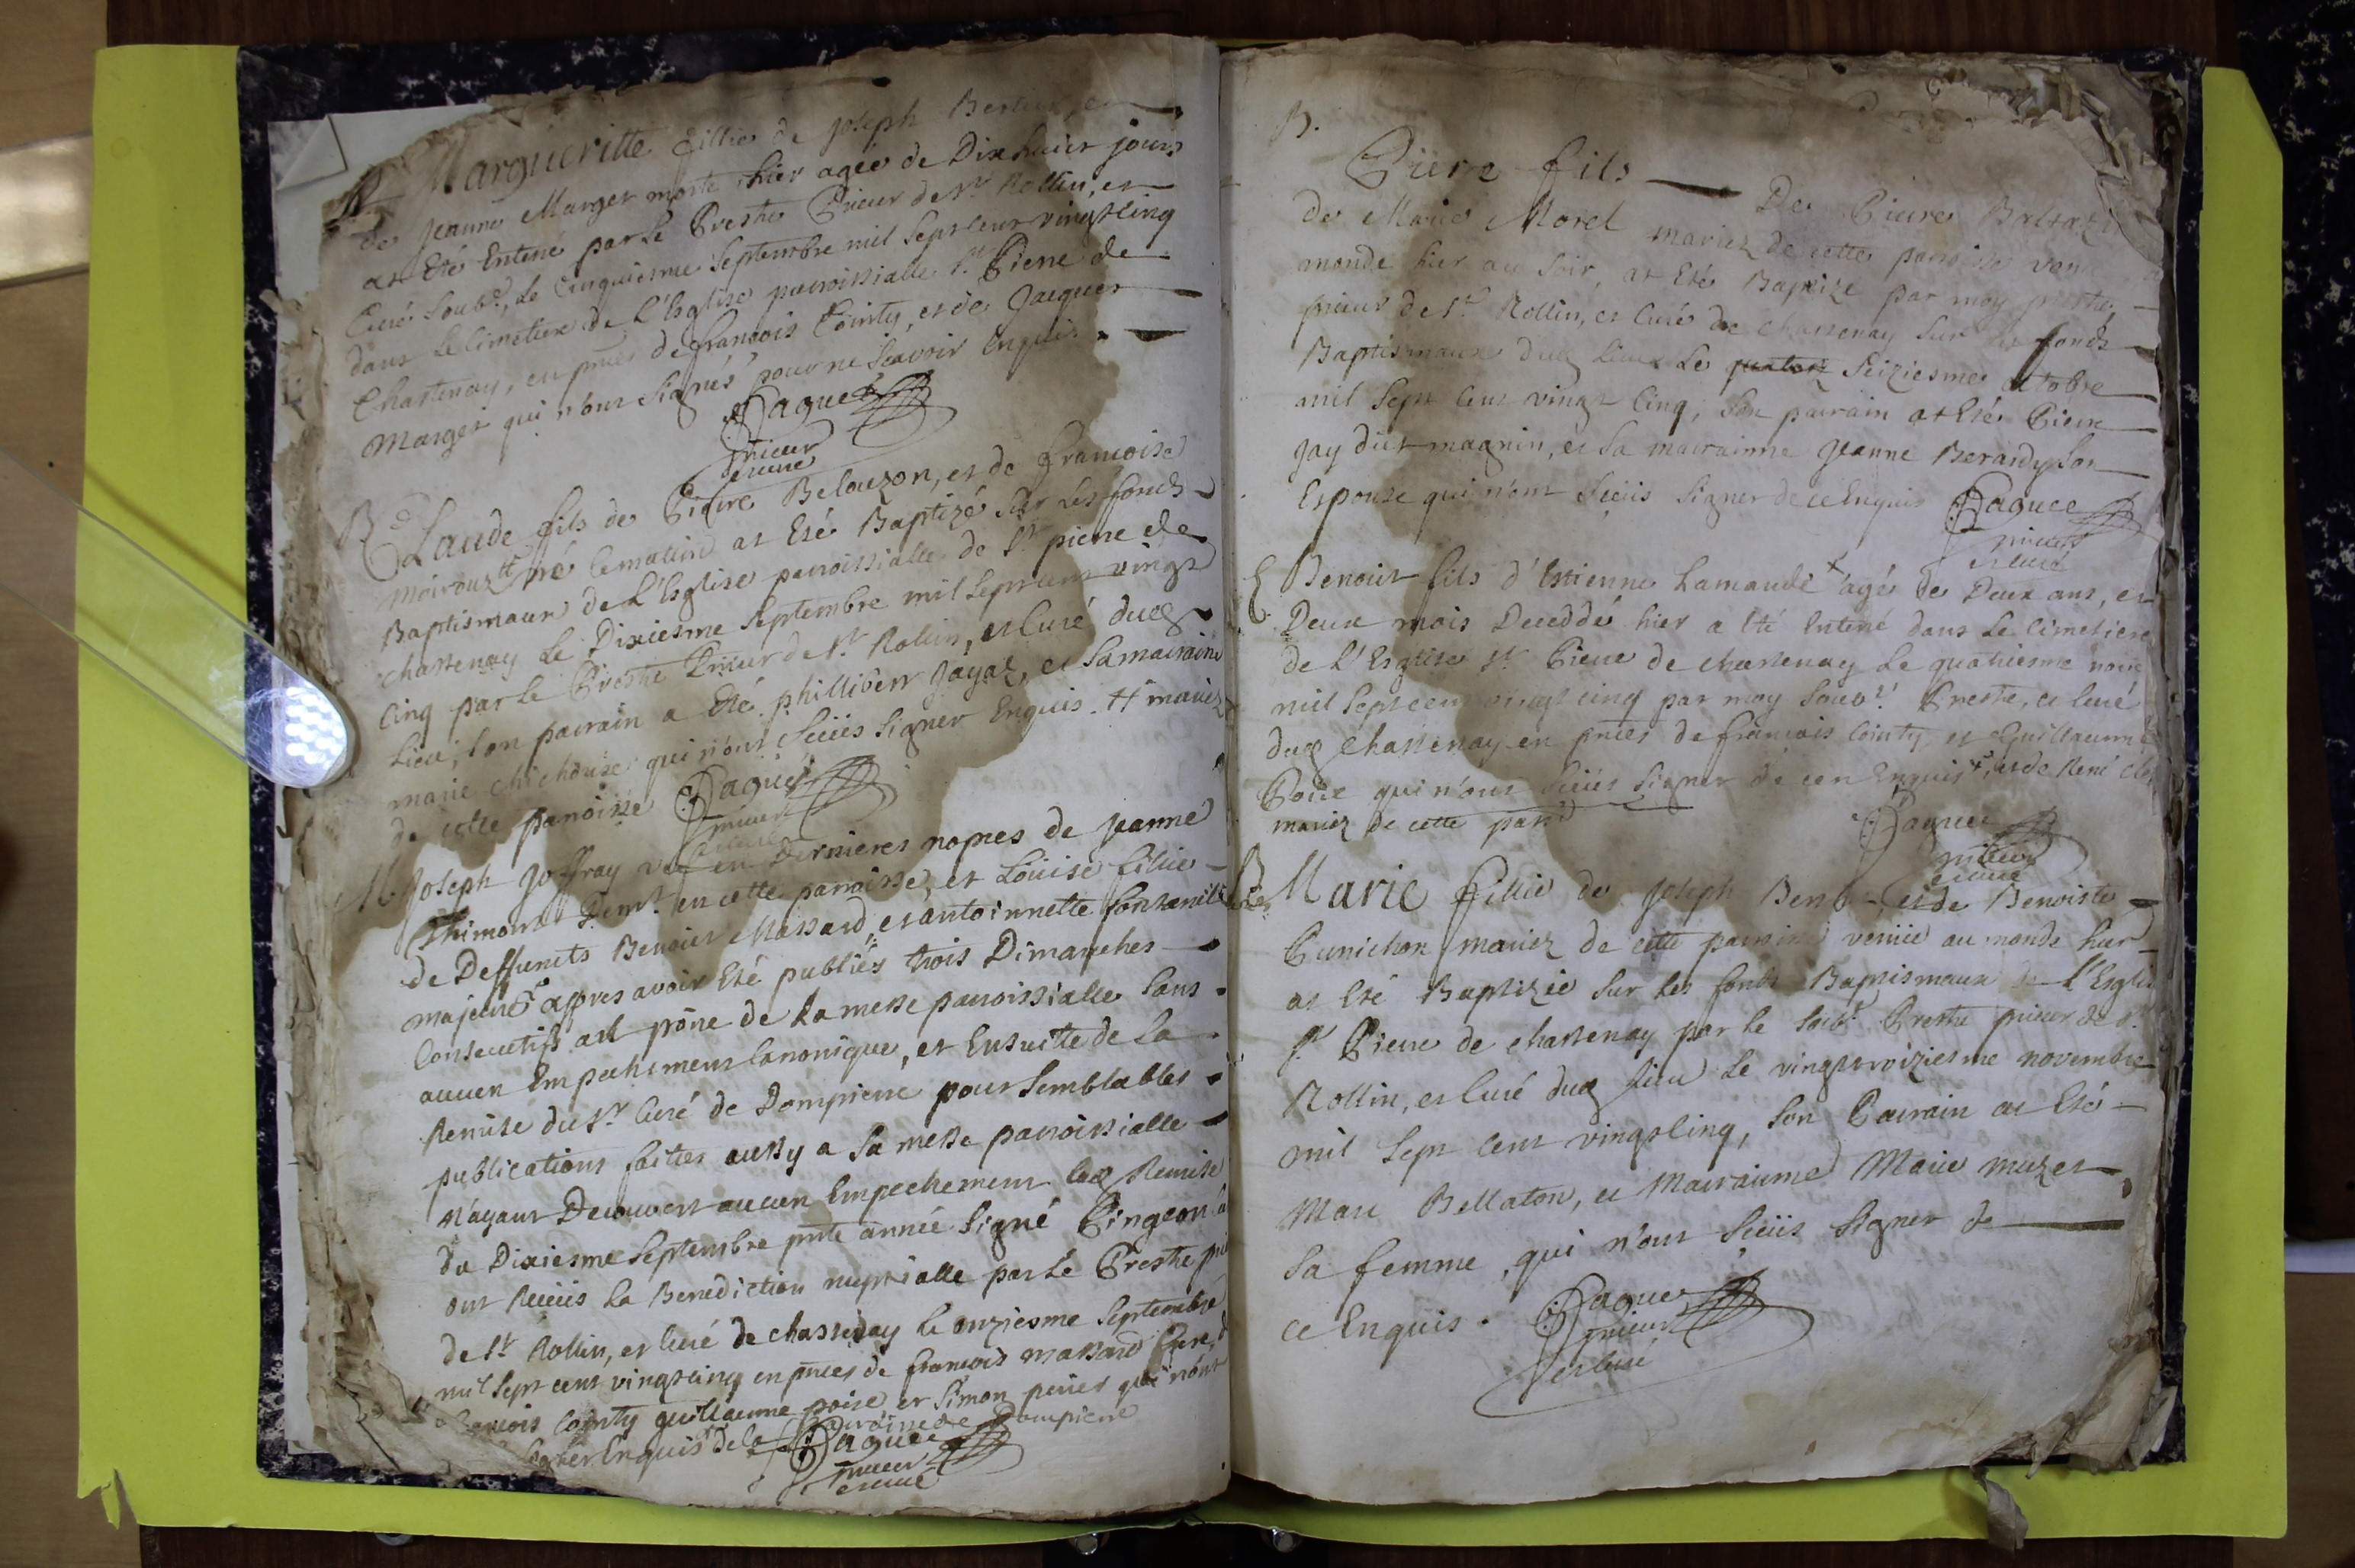 Margueritte fillie de Joseph Berlier, et
de Jeanne Marget morte hier agée de Dix huict jours
at Eté Enterré par le Prestre Prieur de St Rollin, et
Curé soubz.é, Le Cinquiesme Septembre mil Sept Cent vingt Cinq
dans le Cimetiere de L'Esglise parroissialle St Pierre de
Chastenay, en pnces de francois Cointy, et de Jacques
Marget qui n'ont Signés pour ne Scavoir Enquis.
Paguet
prieur
et curé
B Claude fils de Pierre Belouzon, et de francoise
moiroux tt né Cematin at Eté Baptizé sur Les fonds
Baptismaux de L'Esglise parroissialle de St pierre de
chastenay Le Dixiesme Septembre mil Sept cent vingt
Cinq par le Prestre Prieur de St Rollin, et Curé dud
Lieu; son parrain a Eté philliberr Jayal, et Samarraine
marie chichoux qui n'ont Sceüs Signer Enquis. tt mariez
de cette parroisse Paguet
prieur
et curé
M. Joseph Joffray vef en Dernieres nopces de Jeanne
Thimont Demt en cette parroisse, et Loüise fillie
de Deffuncts Benoict Massard, et antoinnette
majeure appres avoir Eté publiés trois Dimanches
Consecutifs au prône de La messe parroissialle Sans
aucun Empechement Canonique, et Ensuitte de La
Remise du Sr Curé de Dompierre pour Semblables
publications faittes aussy a Sa messe parroissialle
n'ayant Decouvert aucun Empechement Lad Remise
du Dixiesme Septembre pnte année Signé Pingeon
ont Receüs La Benediction nuptialle par Le Prestre
de St Rollin, et Curé de chastenay le onziesme Septembre
mil Sept cent vingt cinq en pnces de francois massard frere,
francois Cointy guillaume poise et Simon perier qui n'ont
Signer Enquis de la Dompierre
Paguet
prieur
et curé
B.
Pierre fils De Pierre
de Marie Morel mariez de cette parroisse venu
monde hier au Soir, at Eté Baptizé par moy prestre
prieur de St Rollin, et Curé de chastenay Sur Les fonds
Baptismaux dud Lieu Le Seiziesme octobre
mil Sept Cent vingt Cinq, Son parrain at Eté Pierre
Jay dict magnin, et Sa marrainne Jeanne Berardy Son
Espouse qui n'ont Sceüs Signer de ce Enquis Paguet
prieur
et curé
E Benoict fils d'Estienne Lamande + agé de Deux ans, et
Deux mois Deceddé hier a Eté Enterré dans Le Cimetiere
de L'Esglise St Pierre de chastenay Le quatriesme
mil Sept cent vingt cinq par moy Soubz.é Prestre, et Curé
dud Chastenay en pnces de francois Cointy et Guillaume
Poise qui n'ont Sceüs Signer de ce Enquis +, et de René
mariez de cette parr.
Paguet
prieur
et curé
B Marie fillie de Joseph et de Benoiste
Cunichon mariez de cette parroisse venüe au monde hier
at Eté Baptizée Sur Les fonds Baptismaux de L'Esglise
St Pierre de chastenay par Le Soubz.é Prestre prieur de St
Rollin, et Curé dud Lieu Le vingt troiziesme novembre
mil Sept Cent vingt Cinq, Son Parrain at Eté
Marc Bellaton, et Marrainne Marie muzet
Sa femme, qui n'ont Sceüs Signer de
ce Enquis. Paguet
prieur
et curé